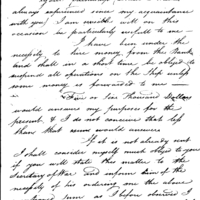 always experienced since my acquaintance
with you! I am
occasion be particularly useful to me —
I have been under the
necessity to hire money from the Bank
and shall in a short time be obliged to
suspend all operations on the Ship unless
some money is forwarded to me —
Five or Six Thousand Dollars
would answer my purposes for the
present & I do not conceive that less
than that sum would answer
If it is not already sent
I shall consider myself much obliged to you
if you will state this matter to the
Secretary of War and inform him of the
necessity of his ordering me the above
sum as I before observed I